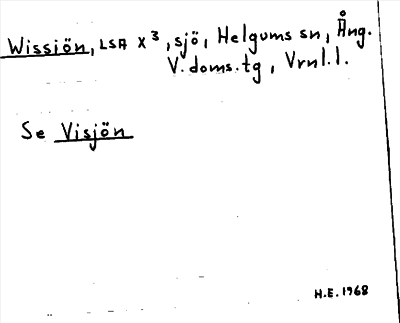 Wissiön, LSA X³, sjö, Helgums sn, Ång.
V. doms. tg, Vrnl. l.
Se Visjön
H.E. 1968